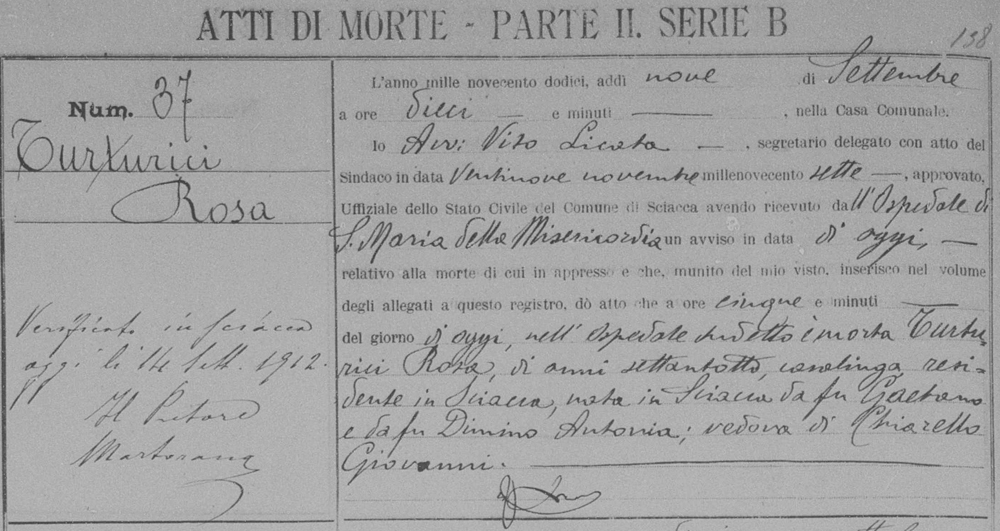 ATTI DI MORTE - PARTE II. SERIE B
138
Num. 37
Turturici
Rosa
Verificato in Sciacca
oggi li 14 Sett. 1912.
Il Pretore
Martorana
L'anno mille novecento dodici, addì nove di Settembre
a ore dieci — e minuti —, nella Casa Comunale.
Io Avv: Vito Licata —, segretario delegato con atto del
Sindaco in data Ventinove novembre millenovecento sette —, approvato,
Uffiziale dello Stato Civile del Comune di Sciacca avendo ricevuto dall'Ospedale di
S. Maria della Misericordia un avviso in data di oggi, —
relativo alla morte di cui in appresso e che, munito del mio visto, inserisco nel volume
degli allegati a questo registro, dò atto che a ore cinque e minuti —
del giorno di oggi, nell'Ospedale sudetto è morta Turtu-
rici Rosa, di anni settantotto, casalinga, resi-
dente in Sciacca, nata in Sciacca da fu Gaetano
e da fu Dimino Antonia; vedova di Chiarello
Giovanni. —